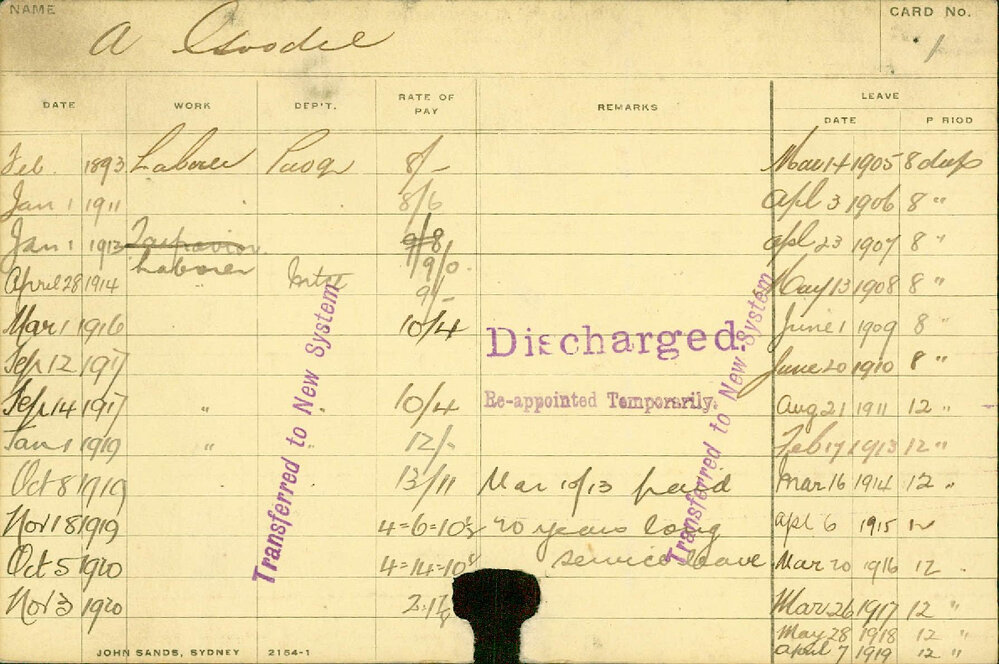 NAME
A Goodie
CARD No.
1
DATE WORK DEP'T. RATE OF PAY REMARKS LEAVE
DATE P RIOD
Feb. 1893 Laborer 8/- Mar 14 1905 8 days
Jan 1 1911 8/6 Apl 3 1906 8 "
Jan 1 1913 9/8 Apl 23 1907 8 "
Laborer 9/0
April 28 1914 9/- May 13 1908 8 "
Mar 1 1916 10/4 June 1 1909 8 "
Discharged.
Sep 12 1917 June 20 1910 8 "
Sep 14 1917 " " 10/4 Re-appointed Temporarily. Aug 21 1911 12 "
Jan 1 1919 " " 12/- Feb 17 1913 12 "
Oct 8 1919 13/11 Mar 10/13 paid Mar 16 1914 12 "
Nov 18 1919 4=6=10 20 years long Apl 6 1915 12
Oct 5 1920 4=14=10 service leave Mar 20 1916 12
Nov 3 1920 Mar 26 1917 12 "
May 28 1918 12 "
April 7 1919 12 "
Transferred to New System
Transferred to New System
JOHN SANDS, SYDNEY 2154-1